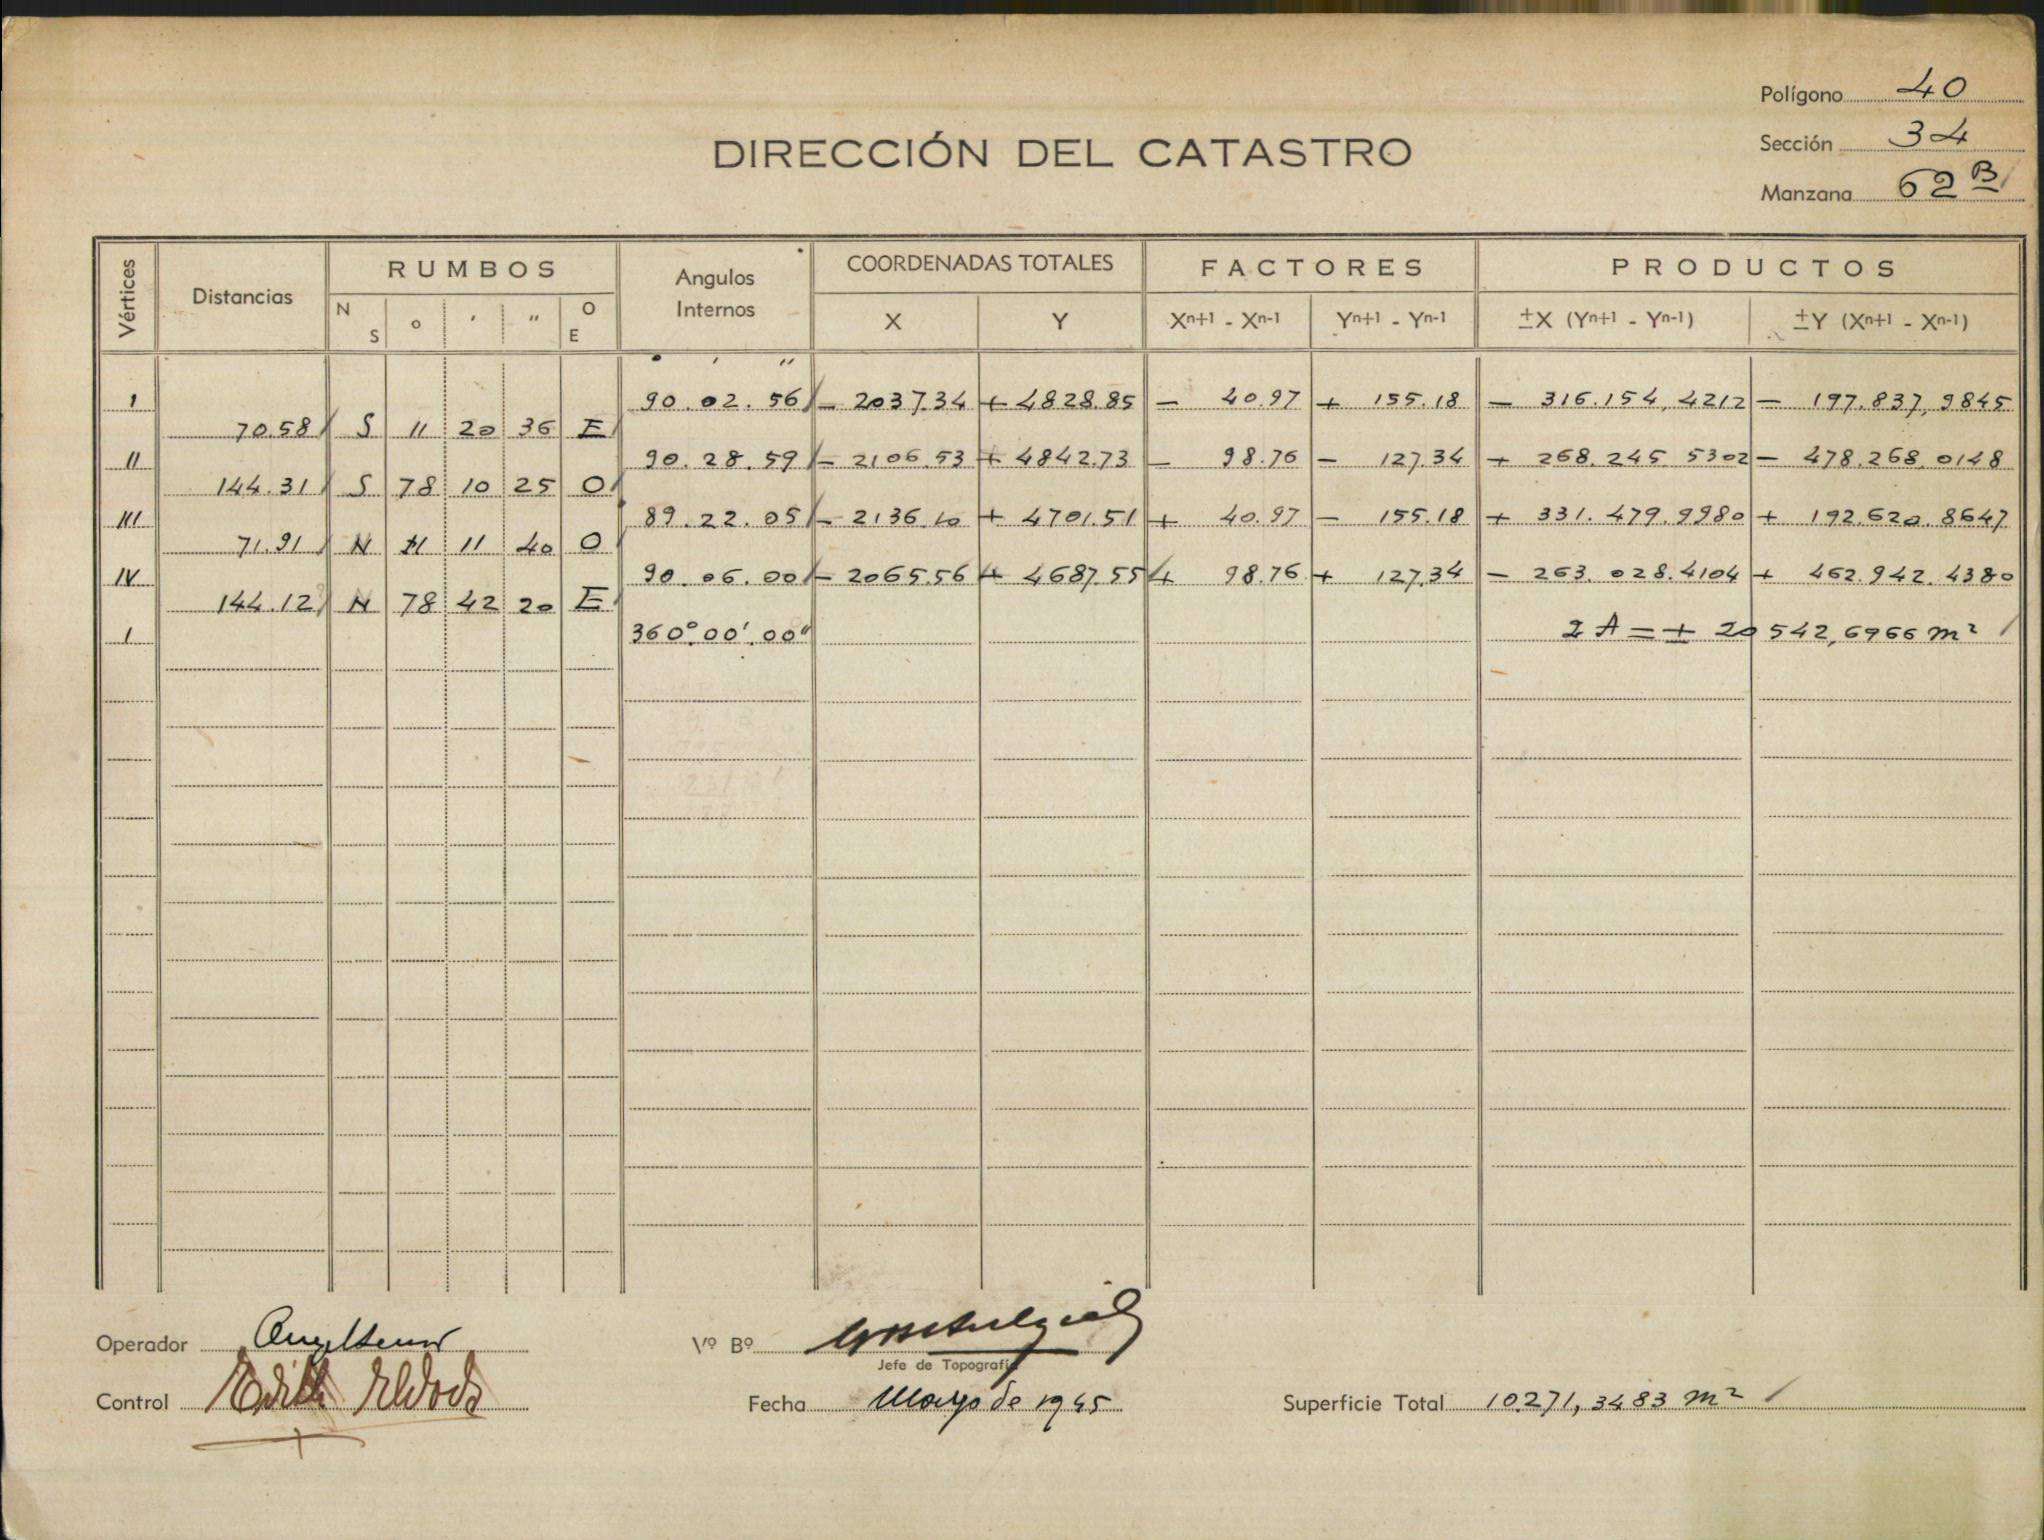 Polígono 40
DIRECCIÓN DEL CATASTRO
Sección 34
Manzana 62 B
Vértices Distancias RUMBOS Angulos Internos COORDENADAS TOTALES FACTORES PRODUCTOS
N S o ' " O E X Y Xn+1 - Xn-1 Yn+1 - Yn-1 ±X (Yn+1 - Yn-1) ±Y (Xn+1 - Xn-1)
° ' "
I 90.02.56 - 2037.34 + 4828.85 - 40.97 + 155.18 - 316.154,4212 - 197.837,9845
70.58 S 11 20 36 E
II 90.28.59 - 2106.53 + 4842.73 - 98.76 - 127.34 + 268.245 5302 - 478.268.0148
144.31 S 78 10 25 O
III 89.22.05 - 2136.10 + 4701.51 + 40.97 - 155.18 + 331.479.9980 + 192.620.8647
71.91 N 11 11 40 O
IV 90.06.00 - 2065.56 + 4687.55 + 98.76 + 127.34 - 263.028.4104 + 462.942.4380
144.12 N 78 42 20 E
I 360°.00'.00" 2A = + 20542,6966 m²
Operador
Vº Bº
Jefe de Topografía
Control
Fecha Mayo de 1945
Superficie Total 10.271,3483 m²